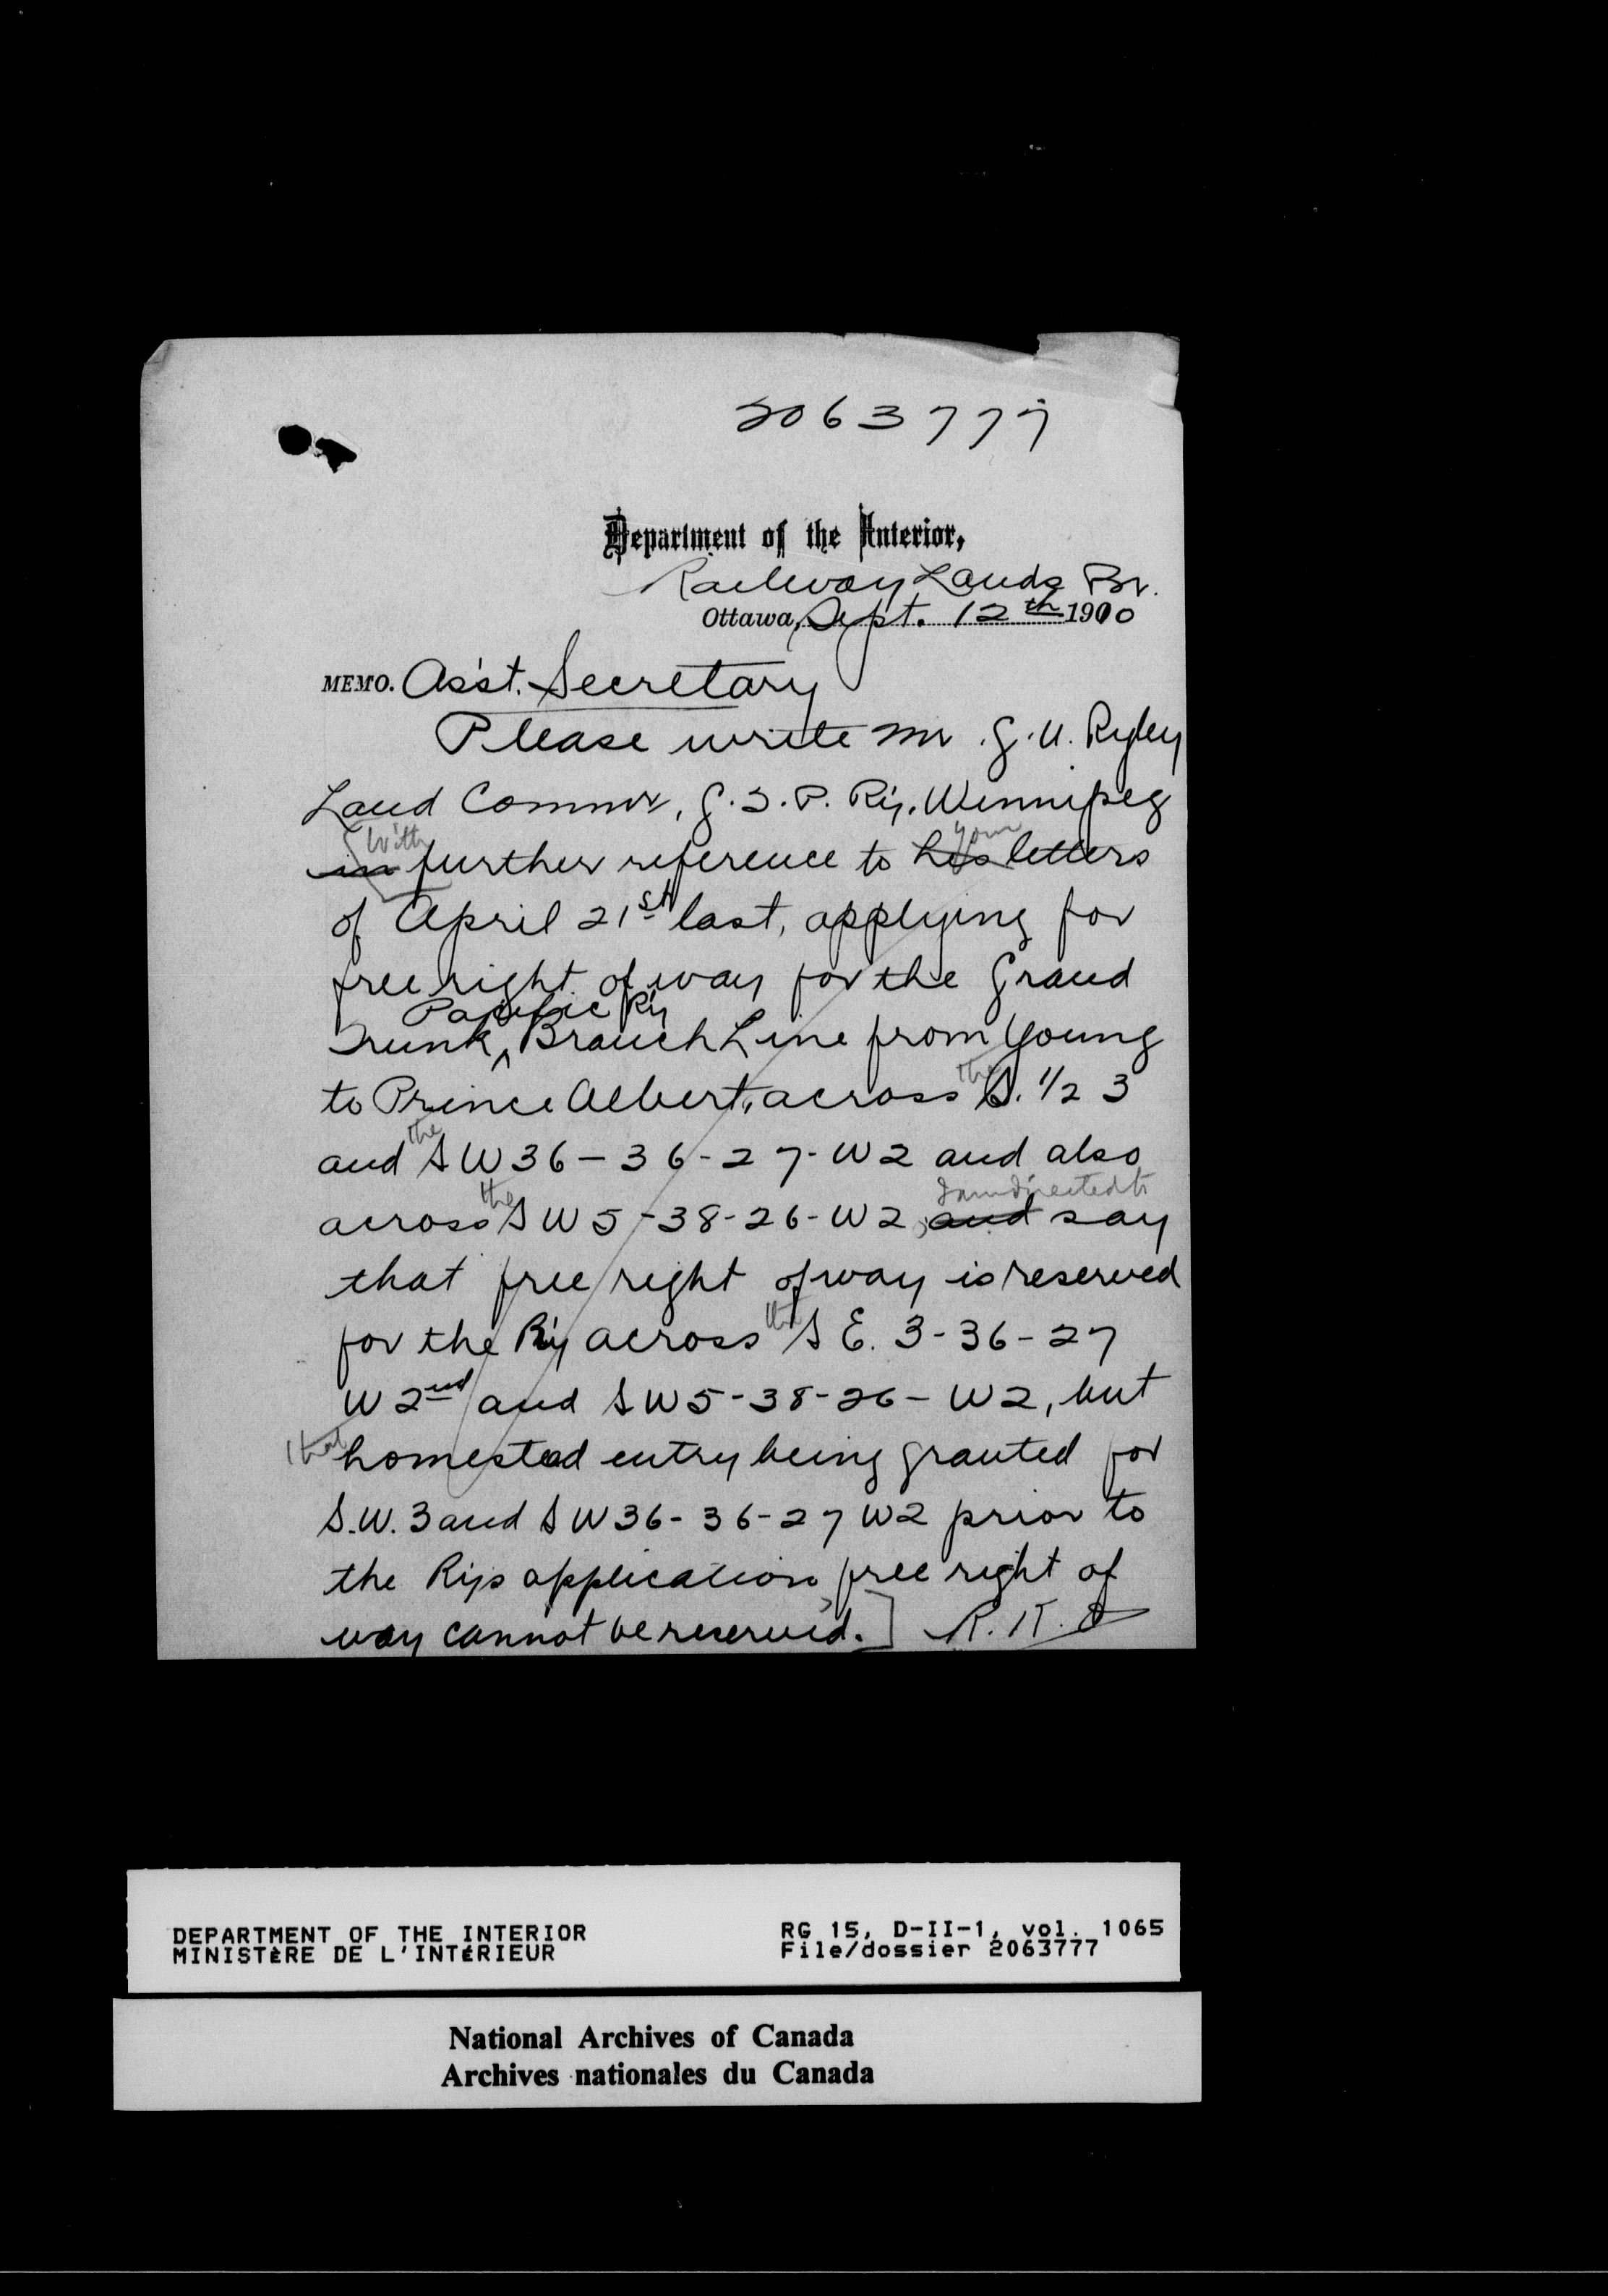 2063777
Department of the Interior,
Railway Lands Br.
Ottawa, Sept. 12th 1910
MEMO. Ass't. Secretary
Please write Mr. G. U. Ryley
Land Commr, G.T.P. Ry. Winnipeg
with
in further reference to his your letters
of April 21st last, applying for
free right of way for the Grand
Pacific Ry
Trunk ^ Branch Line from Young
to Prince Albert, across the S. 1/2 3
and the SW 36-36-27-W2 and also
I am directed to
across the SW 5-38-26-W2, and say
that free right of way is reserved
for the Ry across the S E. 3-36-27
W 2nd and SW5-38-26-W2, but
that homestead entry being granted for
S.W. 3 and SW 36-36-27 W2 prior to
the Rys application, free right of
way cannot be reserved.] R. K.
DEPARTMENT OF THE INTERIOR
MINISTÈRE DE L'INTÉRIEUR
RG 15, D-II-1, vol. 1065
File/dossier 2063777
National Archives of Canada
Archives nationales du Canada